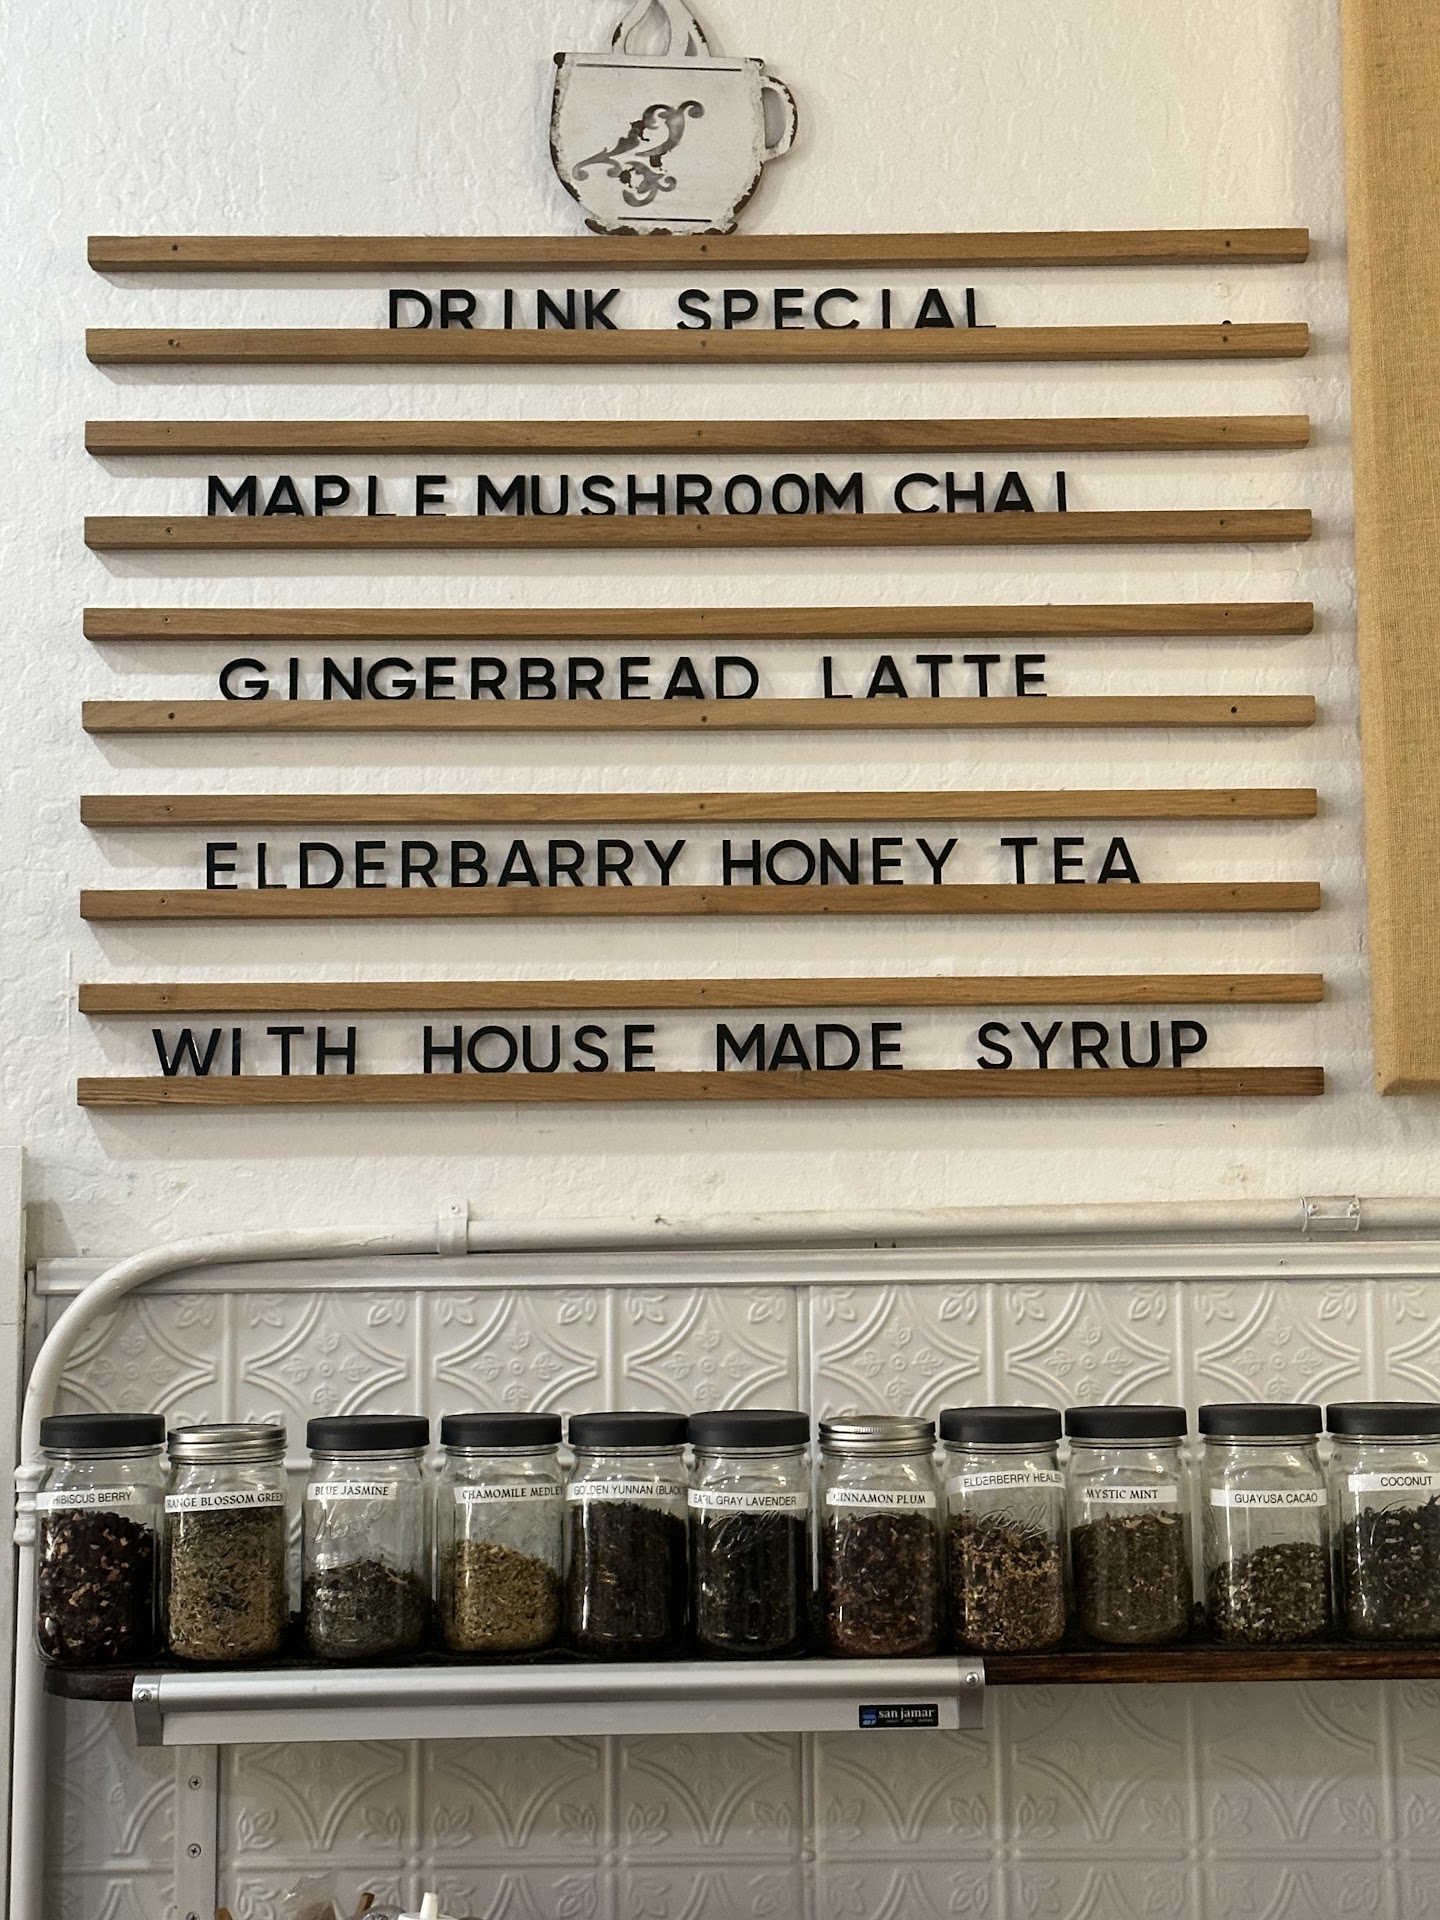 DRINK SPECIAL
MAPLE MUSHROOM CHAI
GINGERBREAD LATTE
ELDERBARRY HONEY TEA
WITH HOUSE MADE SYRUP
HIBISCUS BERRY
RANGE BLOSSOM GREEN
BLUE JASMINE
CHAMOMILE MEDLEY
GOLDEN YUNNAN (BLACK
EARL GRAY LAVENDER
CINNAMON PLUM
ELDERBERRY HEALER
MYSTIC MINT
GUAYUSA CACAO
COCONUT
Ball
san jamar